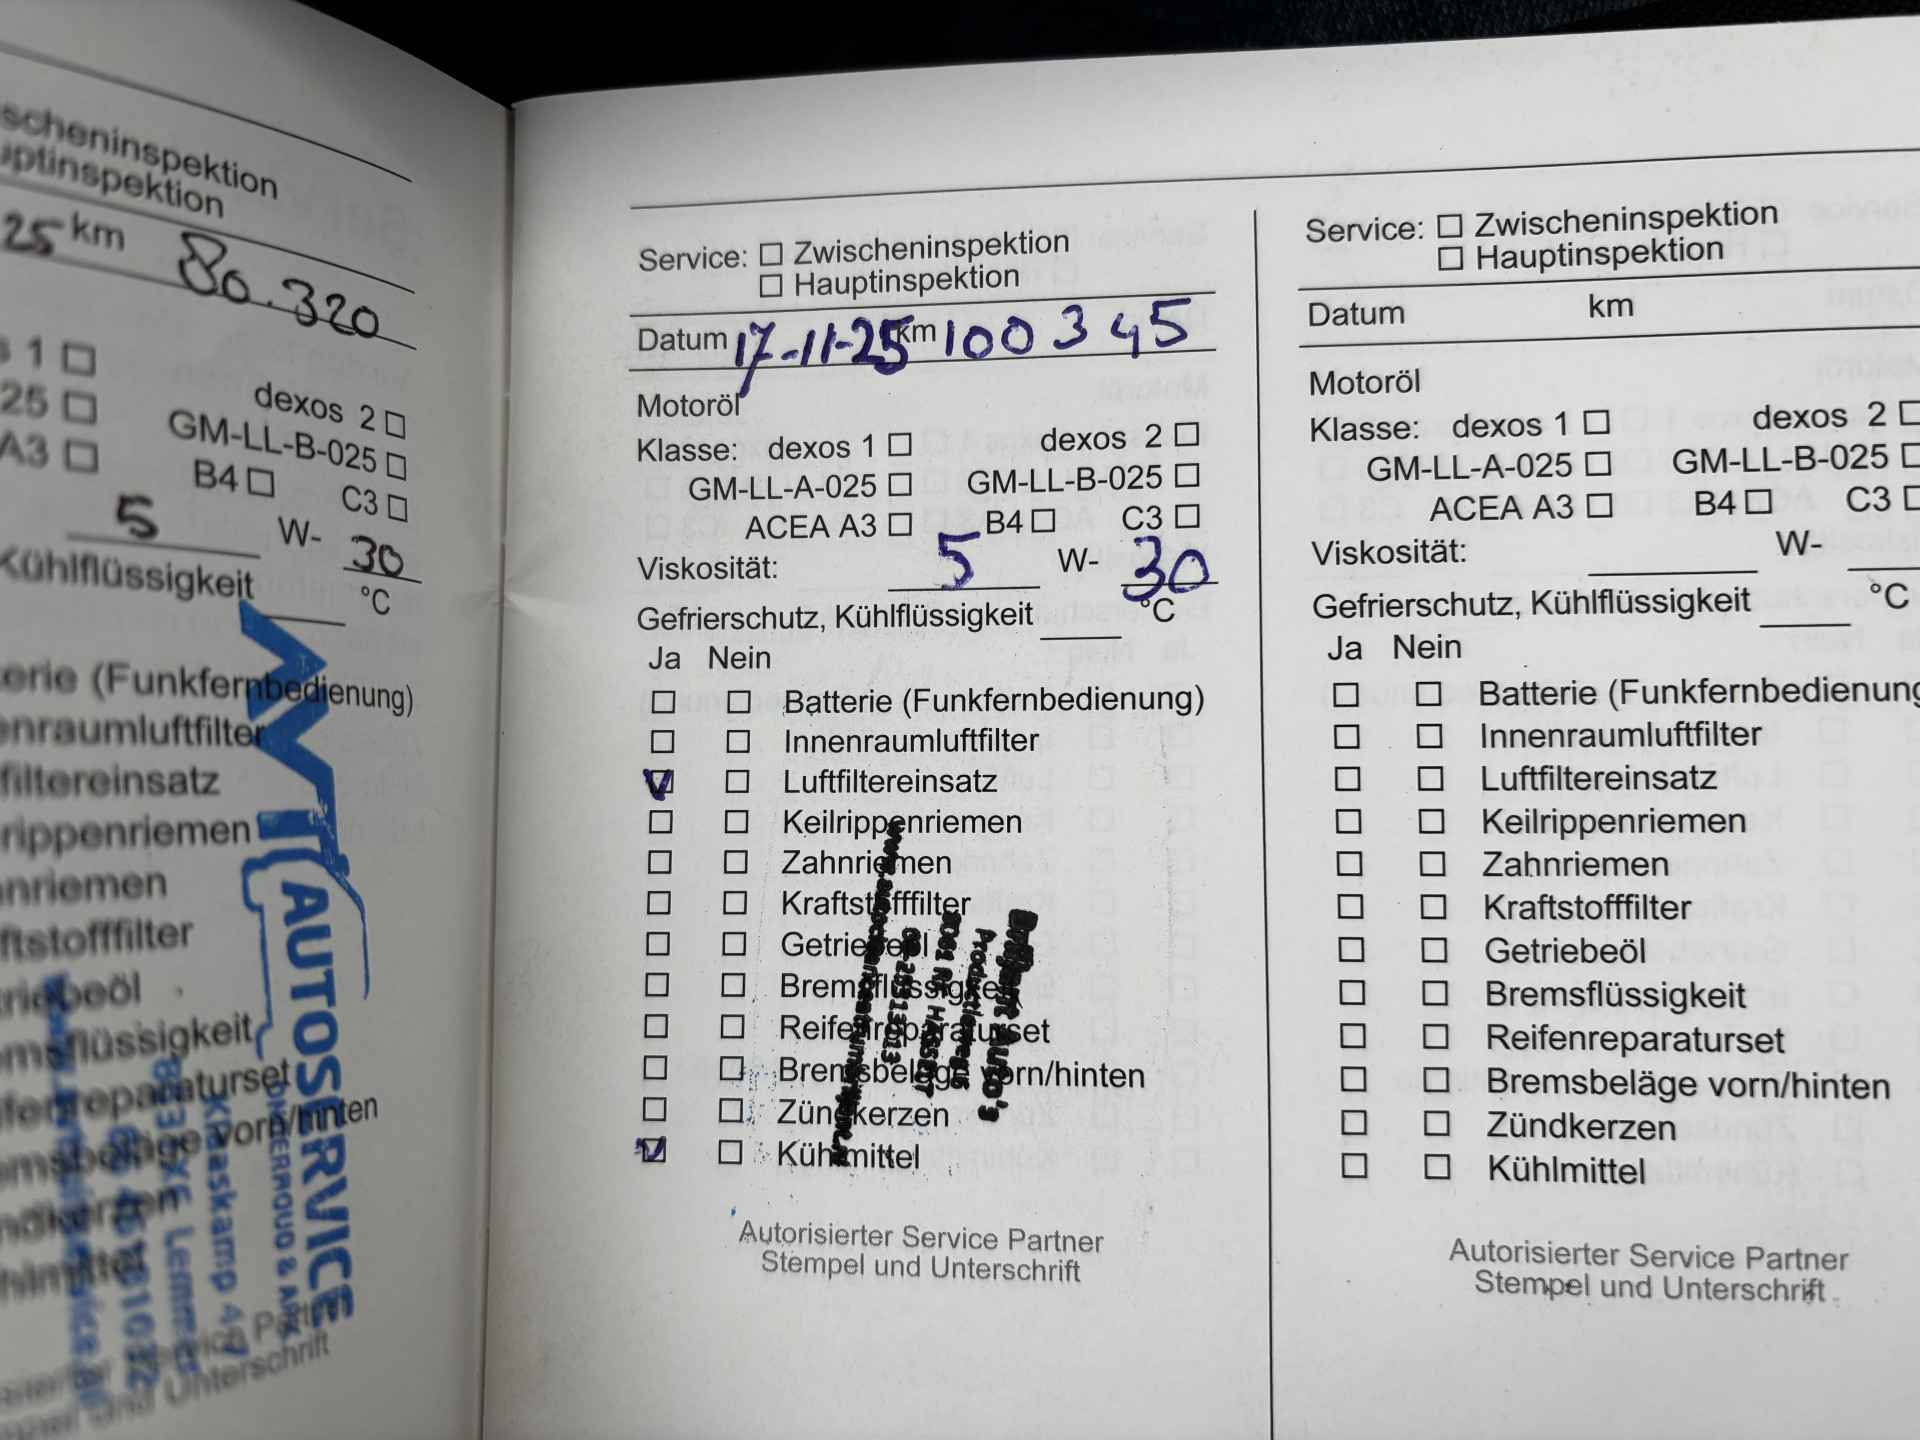 scheninspektion
uptinspektion
25 km 80.320
1
dexos 2
25
GM-LL-B-025
A3
B4
C3
5 W- 30
Kühlflüssigkeit
°C
erie (Funkfernbedienung)
enraumluftfilter
filtereinsatz
rippenriemen
nriemen
ftstofffilter
riebeöl
emsflüssigkeit
fenreparaturset
emsbeläge vorn/hinten
ndkerzen
hlmittel
AUTOSERVICE
ONDERHOUD & APK
Lemmer
Service: Zwischeninspektion
Hauptinspektion
Datum 17-11-25 km 100 345
Motoröl
Klasse: dexos 1 dexos 2
GM-LL-A-025 GM-LL-B-025
ACEA A3 B4 C3
Viskosität: 5 W- 30
Gefrierschutz, Kühlflüssigkeit °C
Ja Nein
Batterie (Funkfernbedienung)
Innenraumluftfilter
Luftfiltereinsatz
Keilrippenriemen
Zahnriemen
Kraftstofffilter
Getriebeöl
Bremsflüssigkeit
Reifenreparaturset
Bremsbeläge vorn/hinten
Zündkerzen
Kühlmittel
HASSELT
Autorisierter Service Partner
Stempel und Unterschrift
Service: Zwischeninspektion
Hauptinspektion
Datum km
Motoröl
Klasse: dexos 1 dexos 2
GM-LL-A-025 GM-LL-B-025
ACEA A3 B4 C3
Viskosität: W-
Gefrierschutz, Kühlflüssigkeit °C
Ja Nein
Batterie (Funkfernbedienung
Innenraumluftfilter
Luftfiltereinsatz
Keilrippenriemen
Zahnriemen
Kraftstofffilter
Getriebeöl
Bremsflüssigkeit
Reifenreparaturset
Bremsbeläge vorn/hinten
Zündkerzen
Kühlmittel
Autorisierter Service Partner
Stempel und Unterschrift